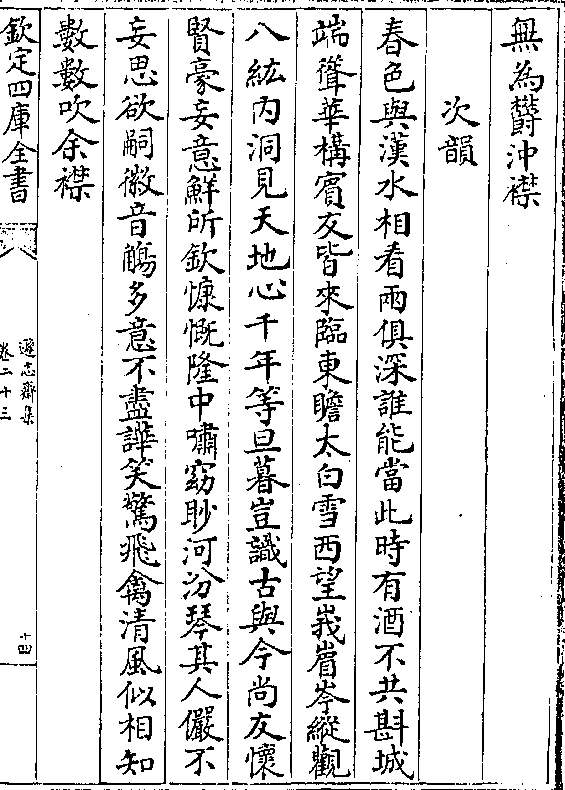 無為欝沖襟
次韻
春色與漢水相看兩俱深誰能當此時有酒不共斟城
端聳華構賓友皆來臨東瞻太白雪西望峩嵋岑縱觀
八紘内洞見天地心千年等旦暮豈識古與今尚友懷
賢豪妄意鮮所欽慷慨隆中嘯窈眇河汾琴其人儼不
妄思欲嗣徽音觴多意不盡譁笑驚飛禽清風似相知
數數吹余襟
欽定四庫全書
遜志齋集
卷二十三
十四